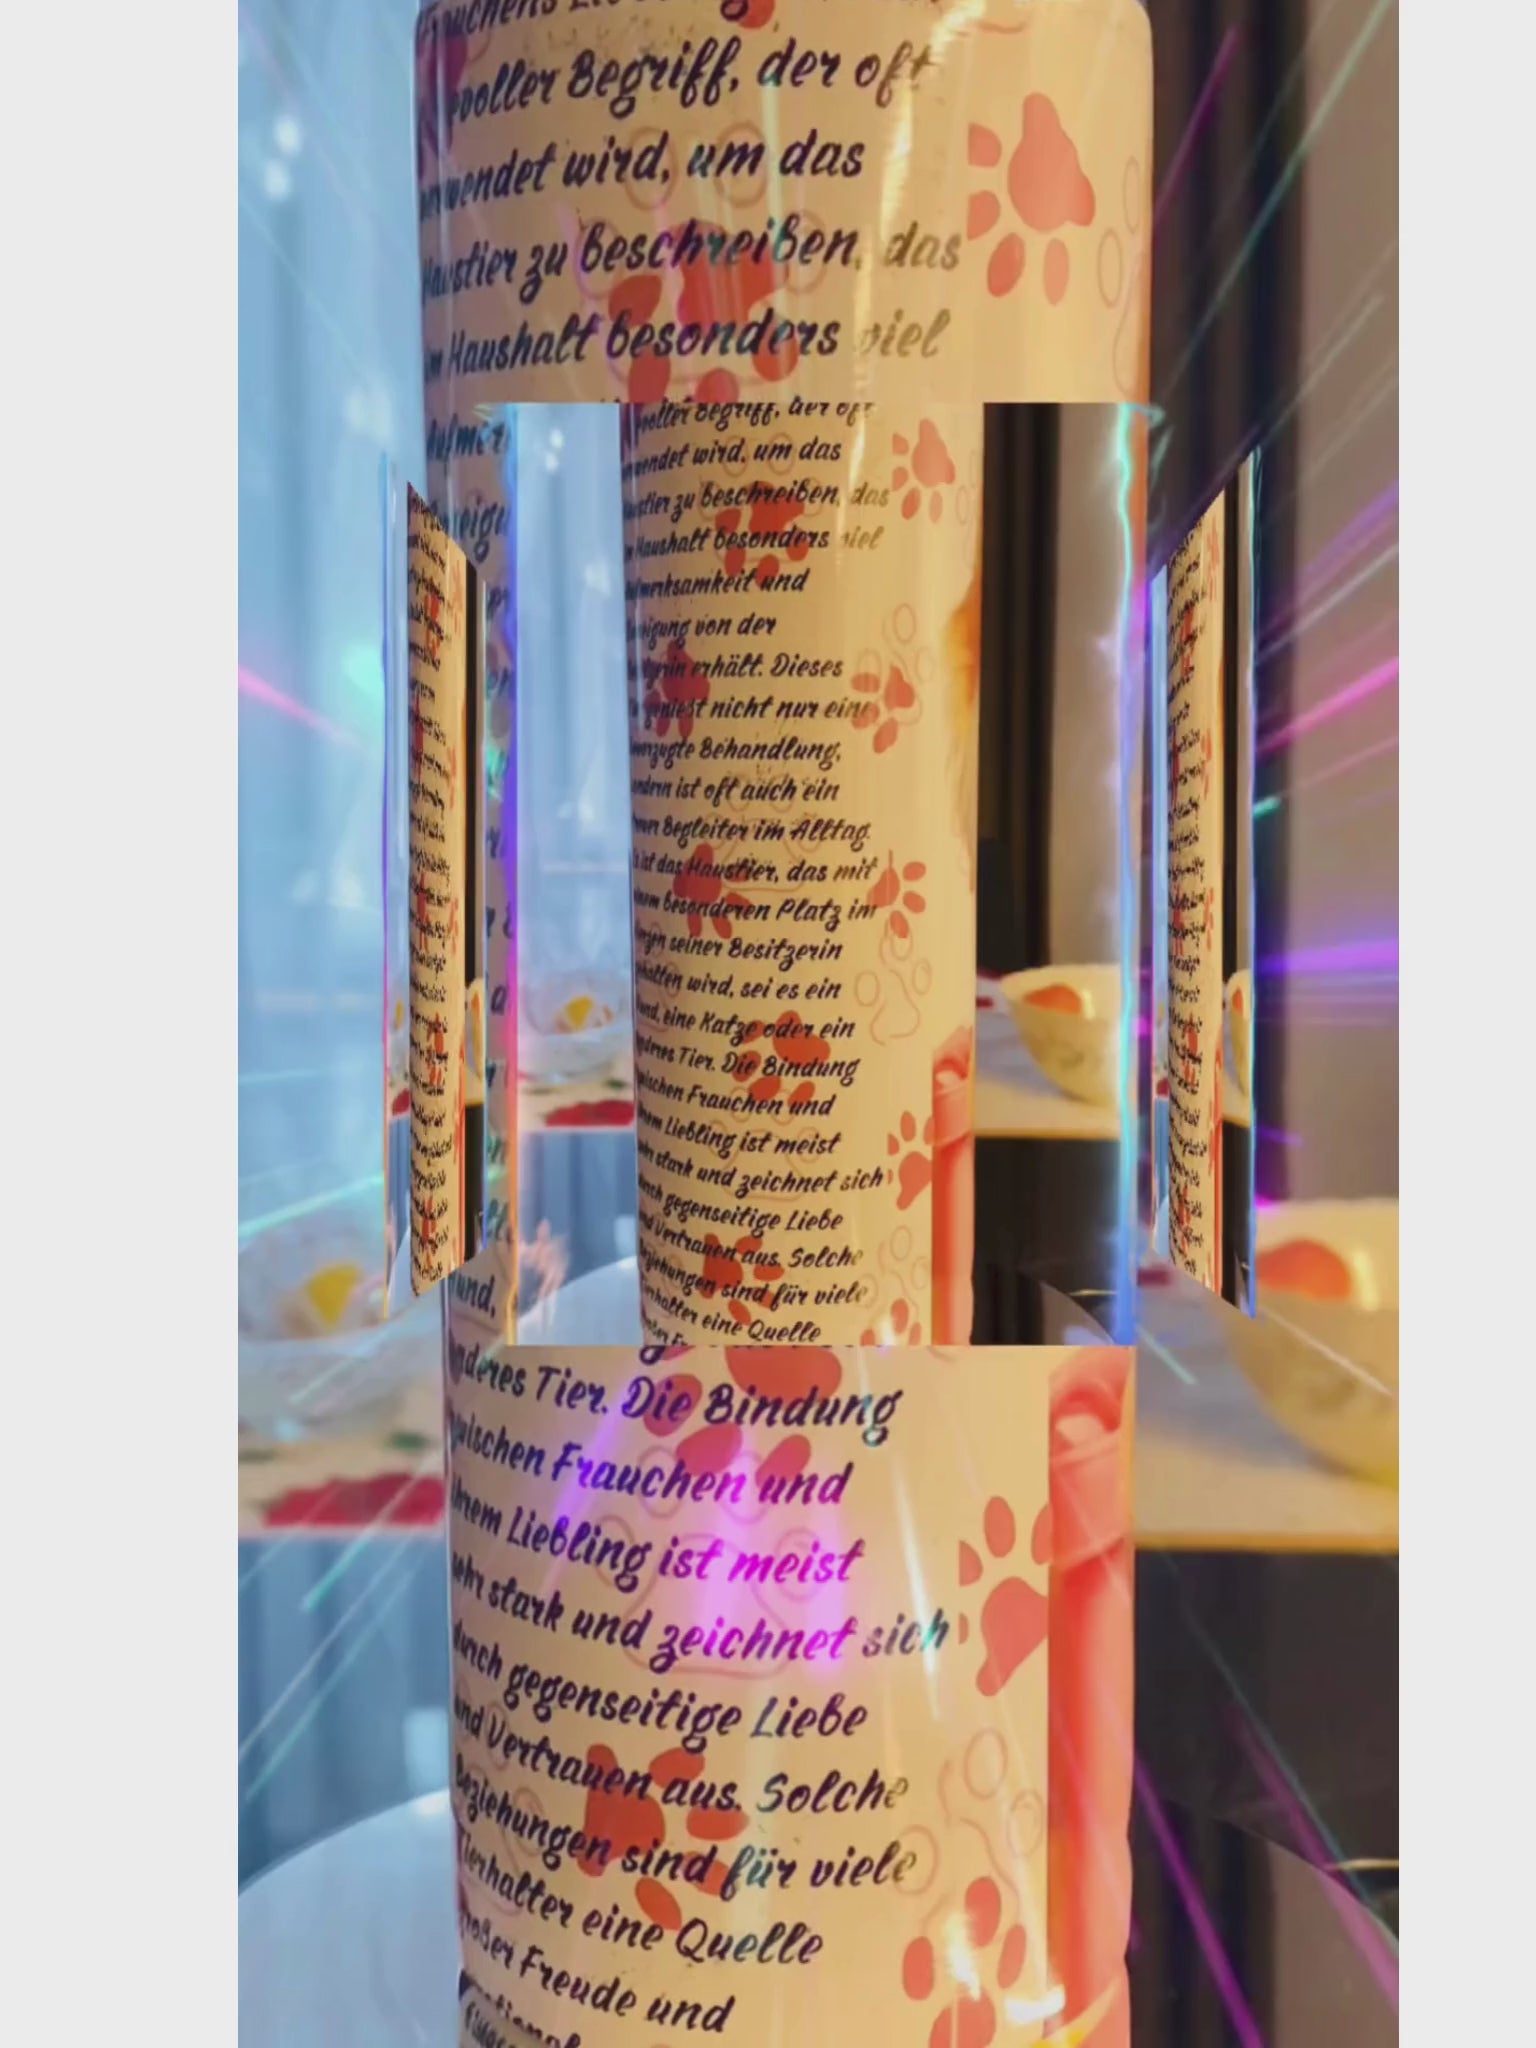 Frauchens
voller Begriff, der oft
verwendet wird, um das
Haustier zu beschreiben, das
im Haushalt besonders viel
voller Begriff, der oft
verwendet wird, um das
Haustier zu beschreiben, das
im Haushalt besonders viel
Aufmerksamkeit und
Zuneigung von der
erhält. Dieses
genießt nicht nur eine
bevorzugte Behandlung,
sondern ist oft auch ein
treuer Begleiter im Alltag.
Es ist das Haustier, das mit
einem besonderen Platz im
Herzen seiner Besitzerin
gehalten wird, sei es ein
Hund, eine Katze oder ein
anderes Tier. Die Bindung
zwischen Frauchen und
ihrem Liebling ist meist
sehr stark und zeichnet sich
durch gegenseitige Liebe
und Vertrauen aus. Solche
Beziehungen sind für viele
Tierhalter eine Quelle
Hund,
anderes Tier. Die Bindung
zwischen Frauchen und
ihrem Liebling ist meist
sehr stark und zeichnet sich
durch gegenseitige Liebe
und Vertrauen aus. Solche
Beziehungen sind für viele
Tierhalter eine Quelle
großer Freude und